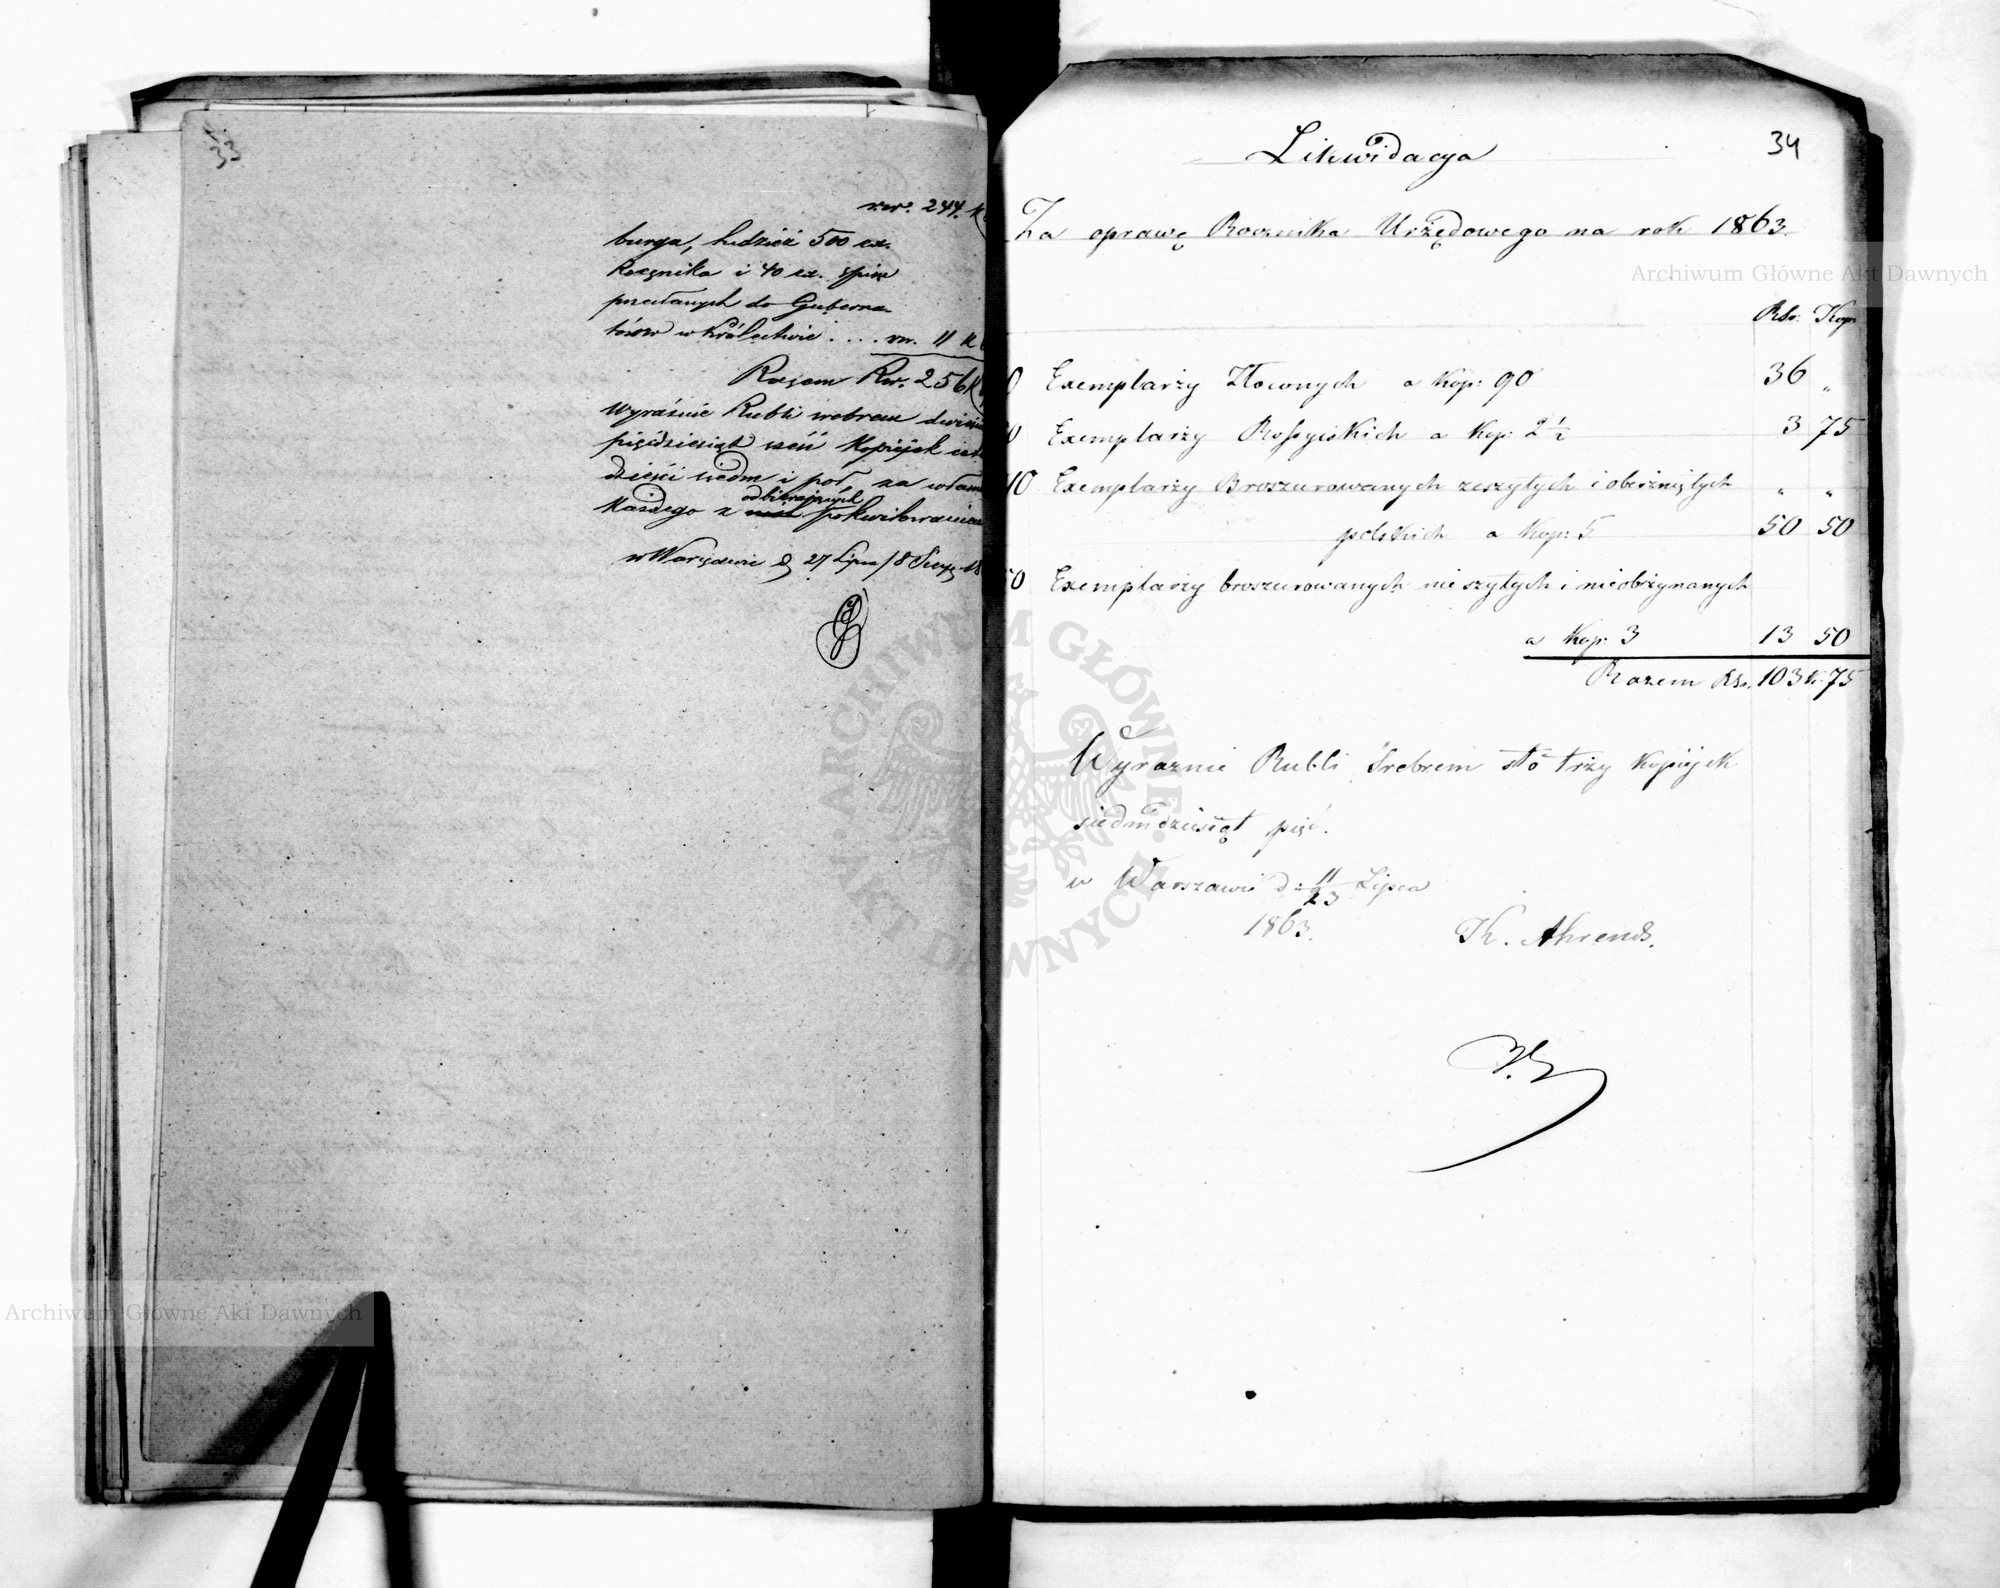 33
rsr. 244. k
burga, tudzież 500 ex.
Rocznika i 40 ex. spisu
przesłanych do Guberna-
torów w Królestwie .... rsr. 11 k
Razem Rsr. 256 k
wyraźnie Rubli srebrem dwieście
pięćdziesiąt sześć kopiejek
dzieści siedm i pół, za własn
odbierających
każdego z pokwitowaniem
w Warszawie d. 27 Lipca / 8 Sierp. 18
34
Likwidacja
Za oprawę Rocznika Urzędowego na rok 1863.
Rsr. Kop.
0 Exemplarzy Złoconych a Kop: 90 36 "
0 Exemplarzy Rossyiskich a Kop: 2 ½ 3 75
10 Exemplarzy Broszurowanych zeszytych i oberzniętych " "
polskich a Kop: 5 50 50
50 Exemplarzy broszurowanych nie szytych i nieobrzynanych
a Kop: 3 13 50
Razem RSr. 103 k. 75
Wyraznie Rubli Srebrem sto trzy kopijek
siedmdziesiąt pięć.
w Warszawie d: 11/23 Lipca
1863. K. Ahrends.
Archiwum Główne Akt Dawnych
ARCHIWUM GŁÓWNE AKT DAWNYCH
Archiwum Główne Akt Dawnych